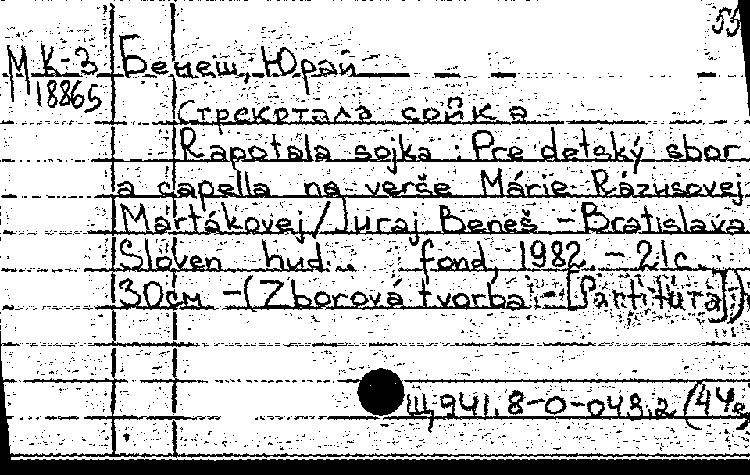 55
МК-3 Бенеш, Юрай
18865
Стрекотала сойка
Rapotala sojka : Pre detský sbor
a capella na verše Márie Rázusovej
Martákovej / Juraj Beneš - Bratislava
Sloven hud. fond, 1982. - 21 с.
30см - (Zborová tvorba - [Partitúra])
Щ,941.8-0-043.2 (4Че